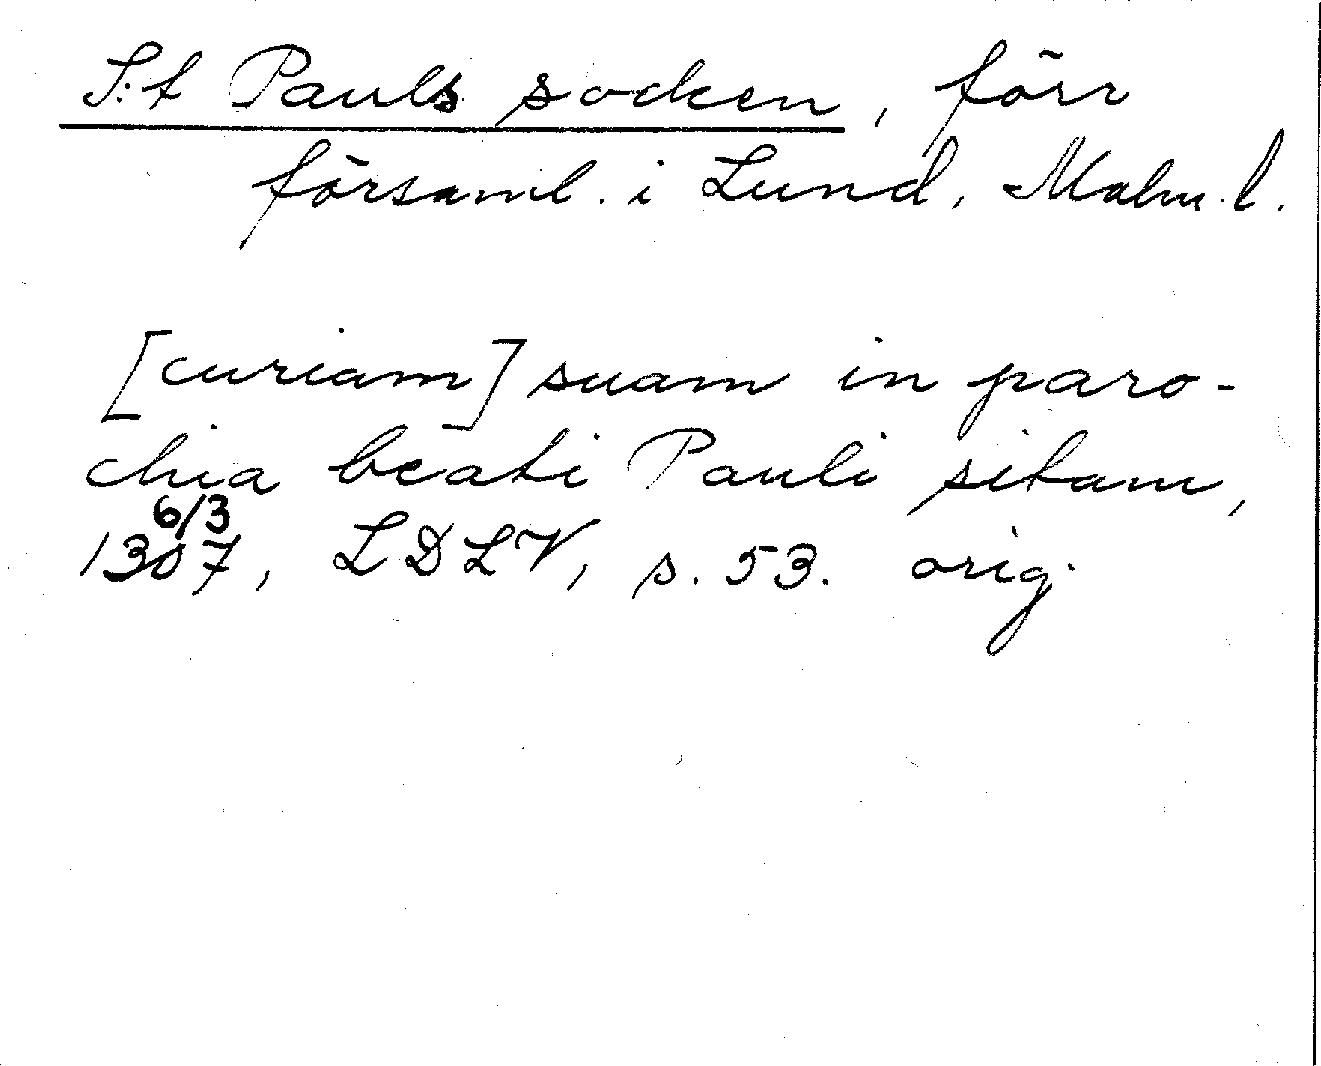 S:t Pauls socken, förr
församl. i Lund, Malm. l.
[curiam] suam in paro-
chia beati Pauli sitam,
6/3
1307, LDLV, s. 53. orig.